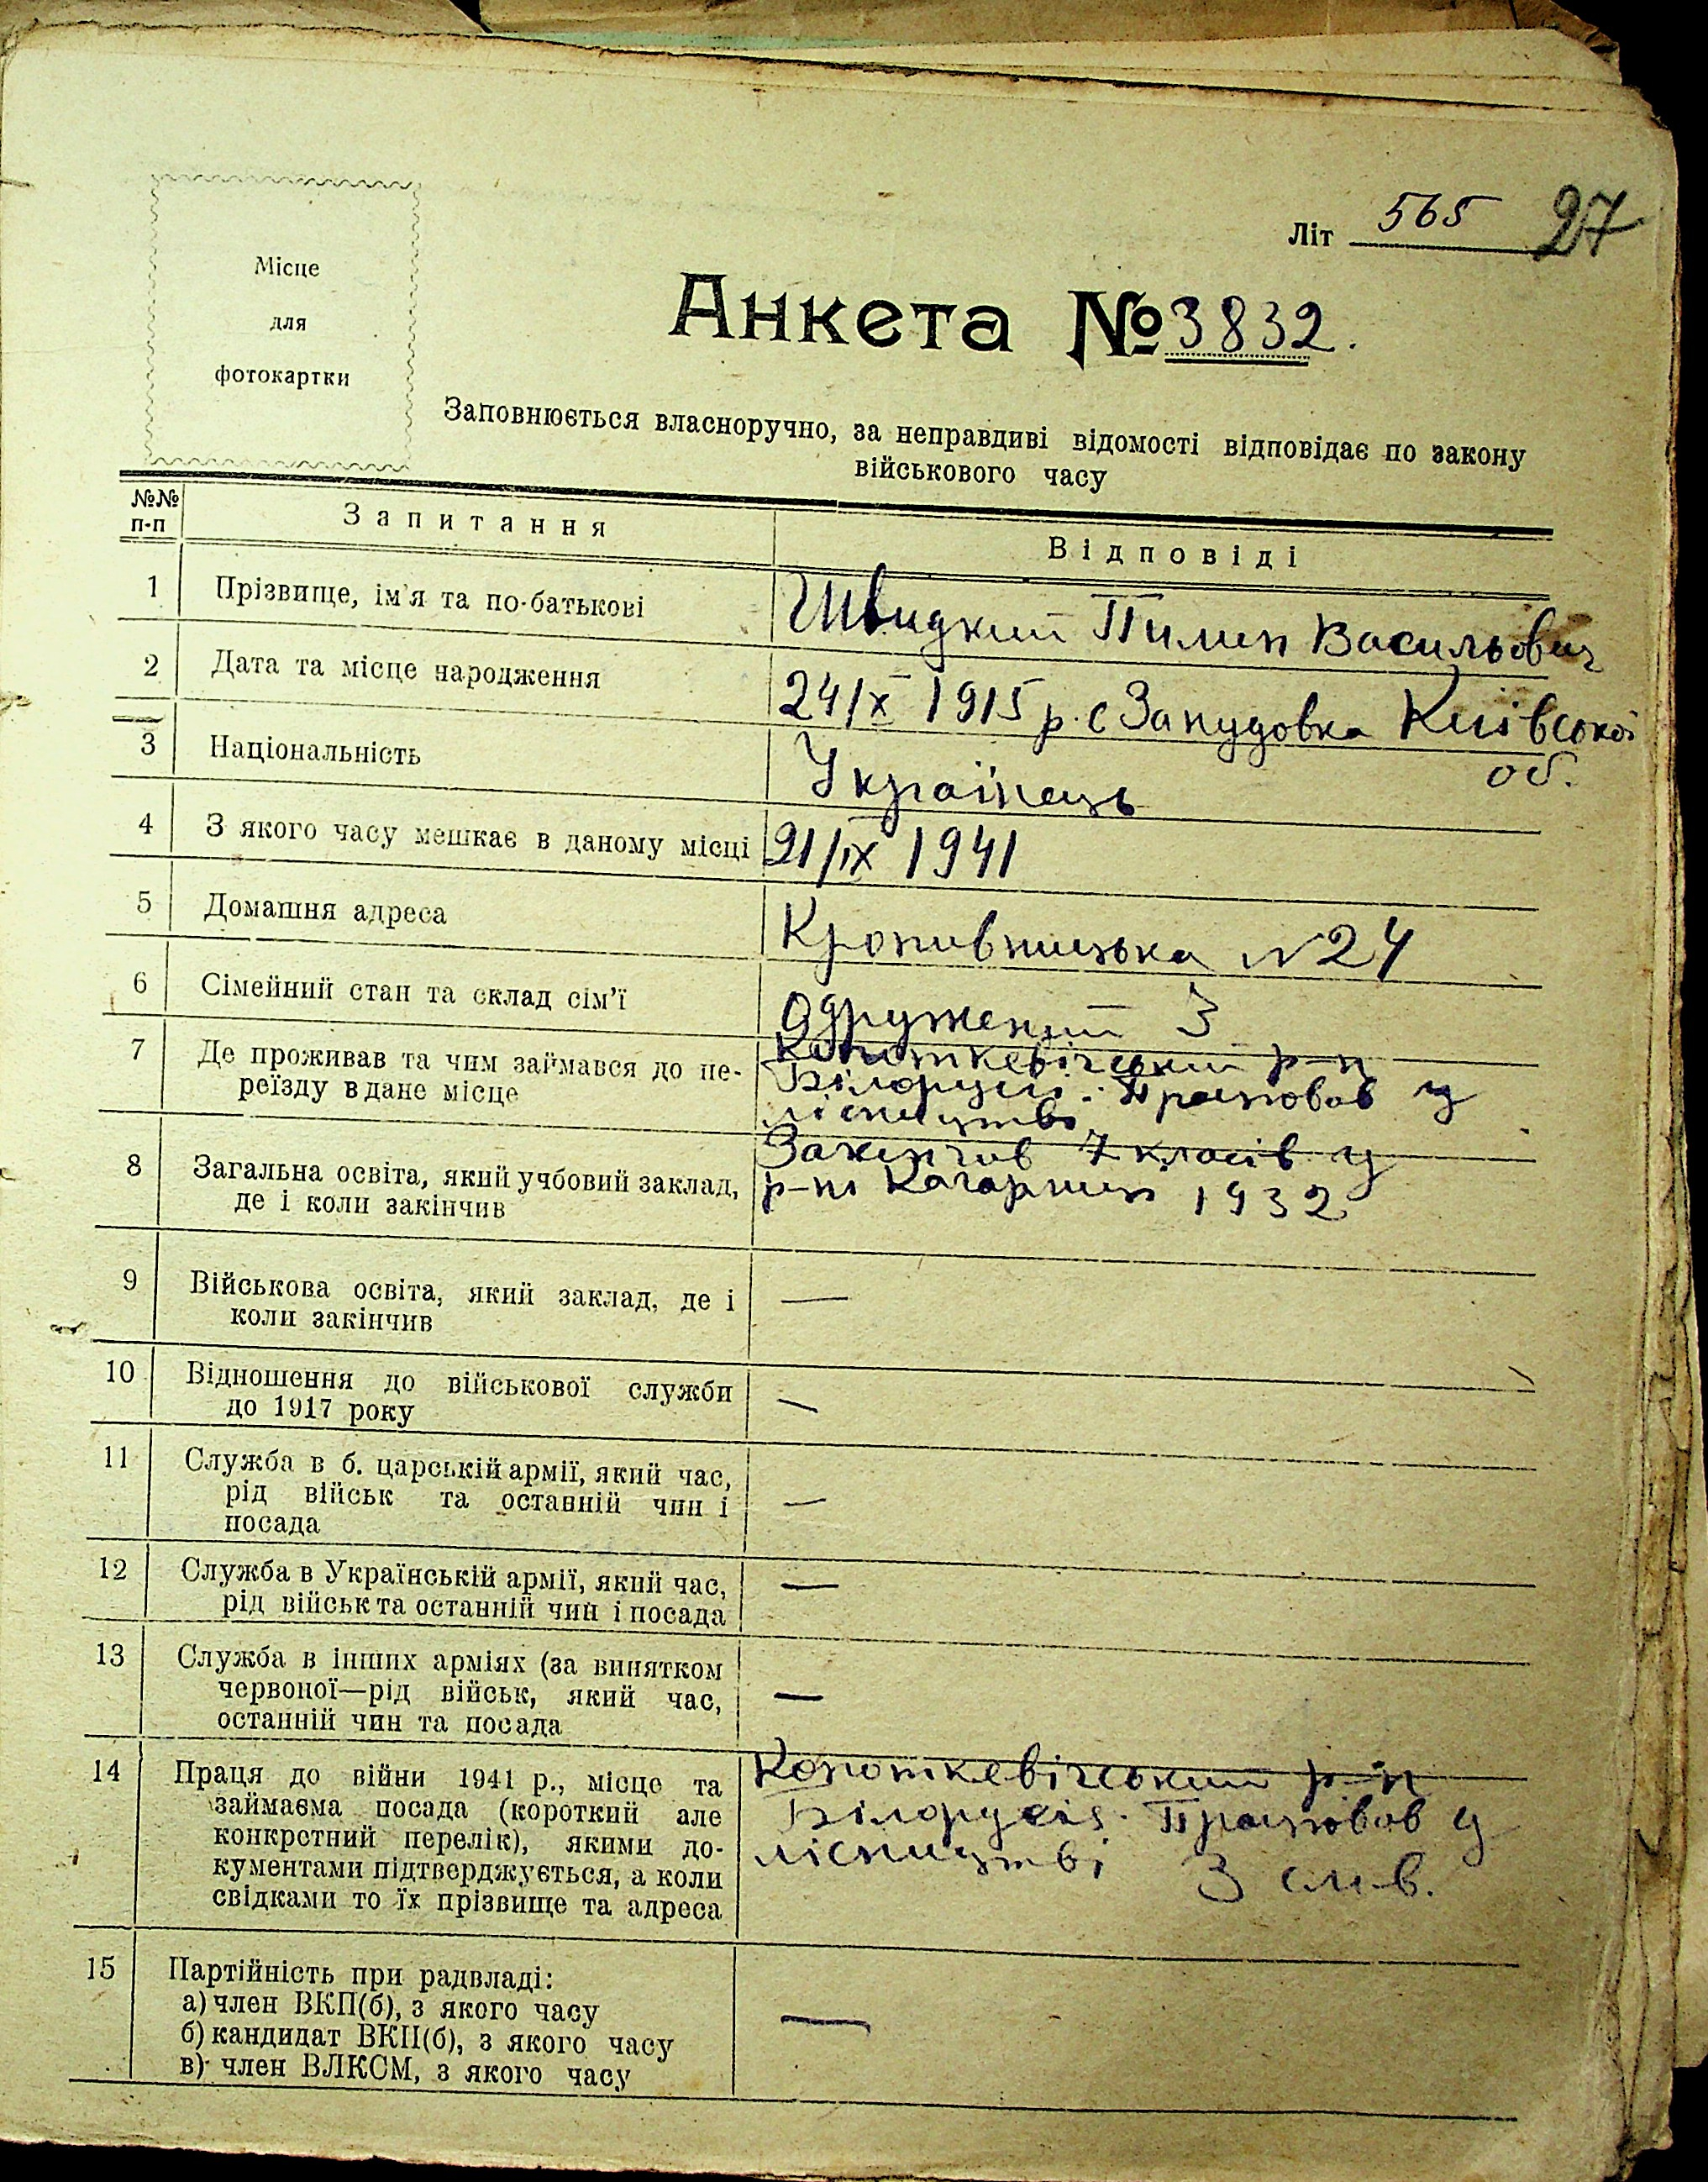 Літ 565 27
Місце
для
фотокартки
Анкета № 3832.
Заповнюється власноручно, за неправдиві відомості відповідає по закону
військового часу
№№ п-п Запитання Відповіді
1 Прізвище, ім'я та по-батькові Швидкий Пимен Васильович
2 Дата та місце народження 24/X 1915 р. с Занудовка Київської
об.
3 Національність Українець
4 З якого часу мешкає в даному місці 21/IX 1941
5 Домашня адреса Кропивницька № 24
6 Сімейний стан та склад сім'ї Одружений 3
7 Де проживав та чим займався до пе- Копиткевічський р-н
реїзду в дане місце Білорусії. Працював у
лісництві
8 Загальна освіта, який учбовий заклад, Закінчив 7 класів у
де і коли закінчив р-ні Кагарлик 1932
9 Військова освіта, який заклад, де і —
коли закінчив
10 Відношення до військової служби —
до 1917 року
11 Служба в б. царській армії, який час, —
рід військ та останній чин і
посада
12 Служба в Українській армії, який час, —
рід військ та останній чин і посада
13 Служба в інших арміях (за винятком —
червоної—рід військ, який час,
останній чин та посада
14 Праця до війни 1941 р., місце та Копоткевічський р-н
займаєма посада (короткий але Білорусія. Працював у
конкретний перелік), якими до- лісництві
кументами підтверджується, а коли
свідками то їх прізвище та адреса
15 Партійність при радвладі: —
а) член ВКП(б), з якого часу
б) кандидат ВКП(б), з якого часу
в) член ВЛКСМ, з якого часу